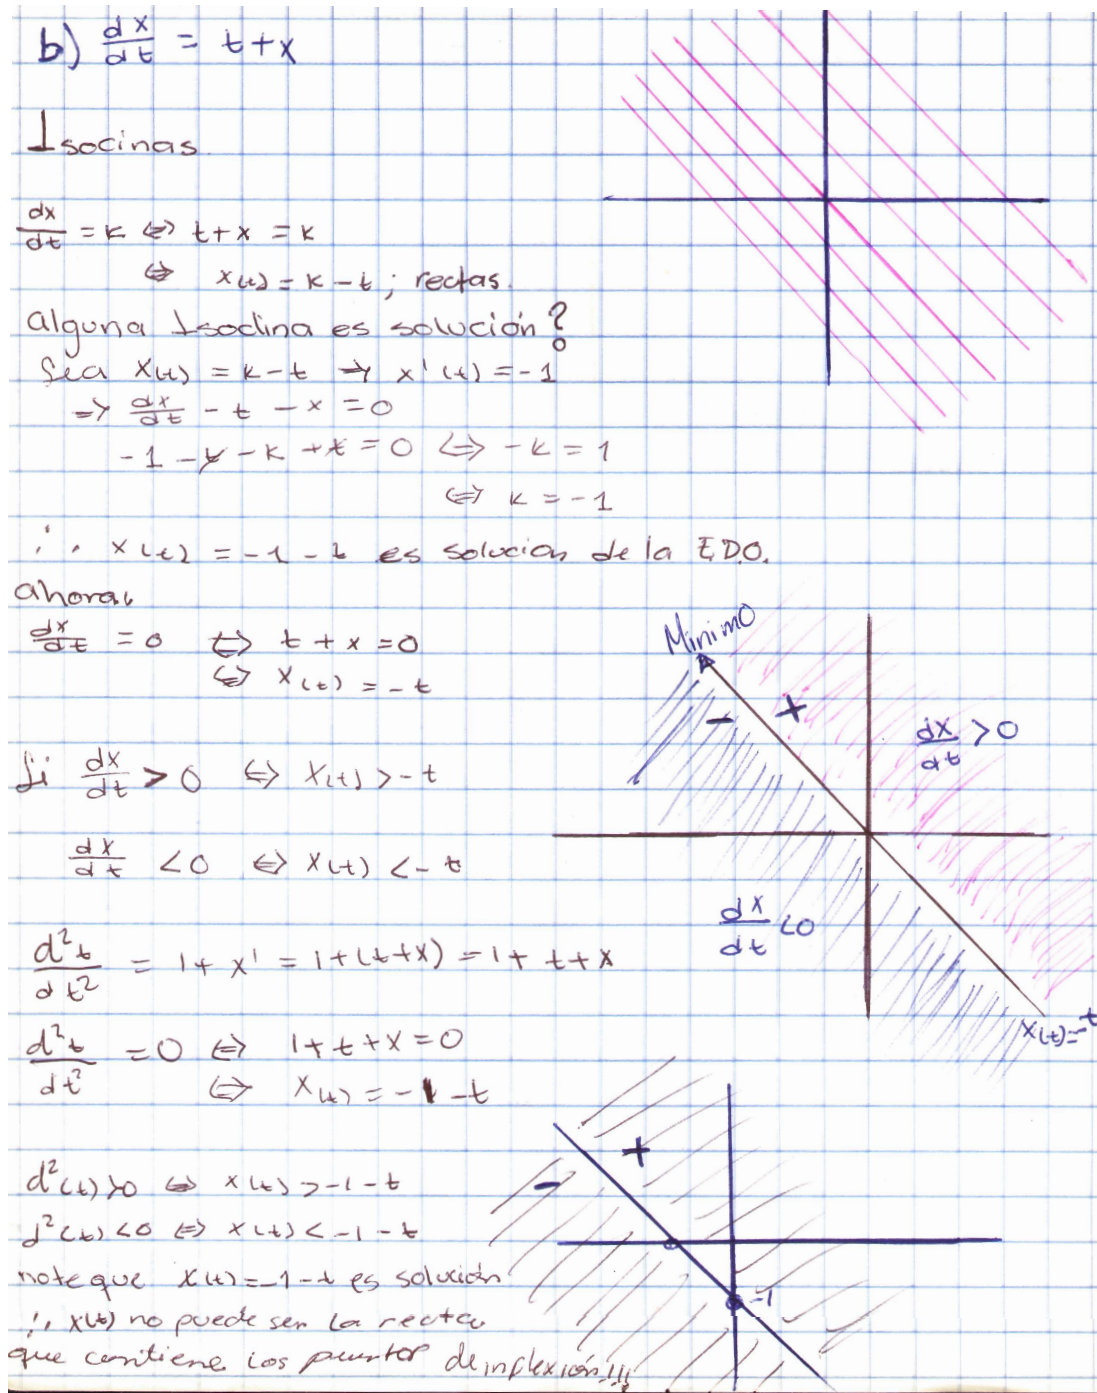 b) dx/dt = t+x
Isocinas
dx/dt = k ⇔ t+x = k
⇔ x(t) = k-t ; rectas.
alguna Isoclina es solución?
Sea x(t) = k-t → x'(t) = -1
⇒ dx/dt - t - x = 0
-1 - t - k + t = 0 ⇔ -k = 1
⇔ k = -1
∴ x(t) = -1 - t es solución de la E.D.O.
ahora,
dx/dt = 0 ⇔ t + x = 0
⇔ x(t) = -t
Mínimo
- +
dx/dt > 0
Si dx/dt > 0 ⇔ x(t) > -t
dx/dt < 0 ⇔ x(t) < -t
dx/dt < 0
x(t) = -t
d²t/dt² = 1 + x' = 1 + (t+x) = 1 + t + x
d²t/dt² = 0 ⇔ 1 + t + x = 0
⇔ x(t) = -1 - t
+
-
-1
d²(t) > 0 ⇔ x(t) > -1 - t
d²(t) < 0 ⇔ x(t) < -1 - t
note que x(t) = -1 - t es solución
∴ x(t) no puede ser la recta
que contiene los puntos de inflexión!!!